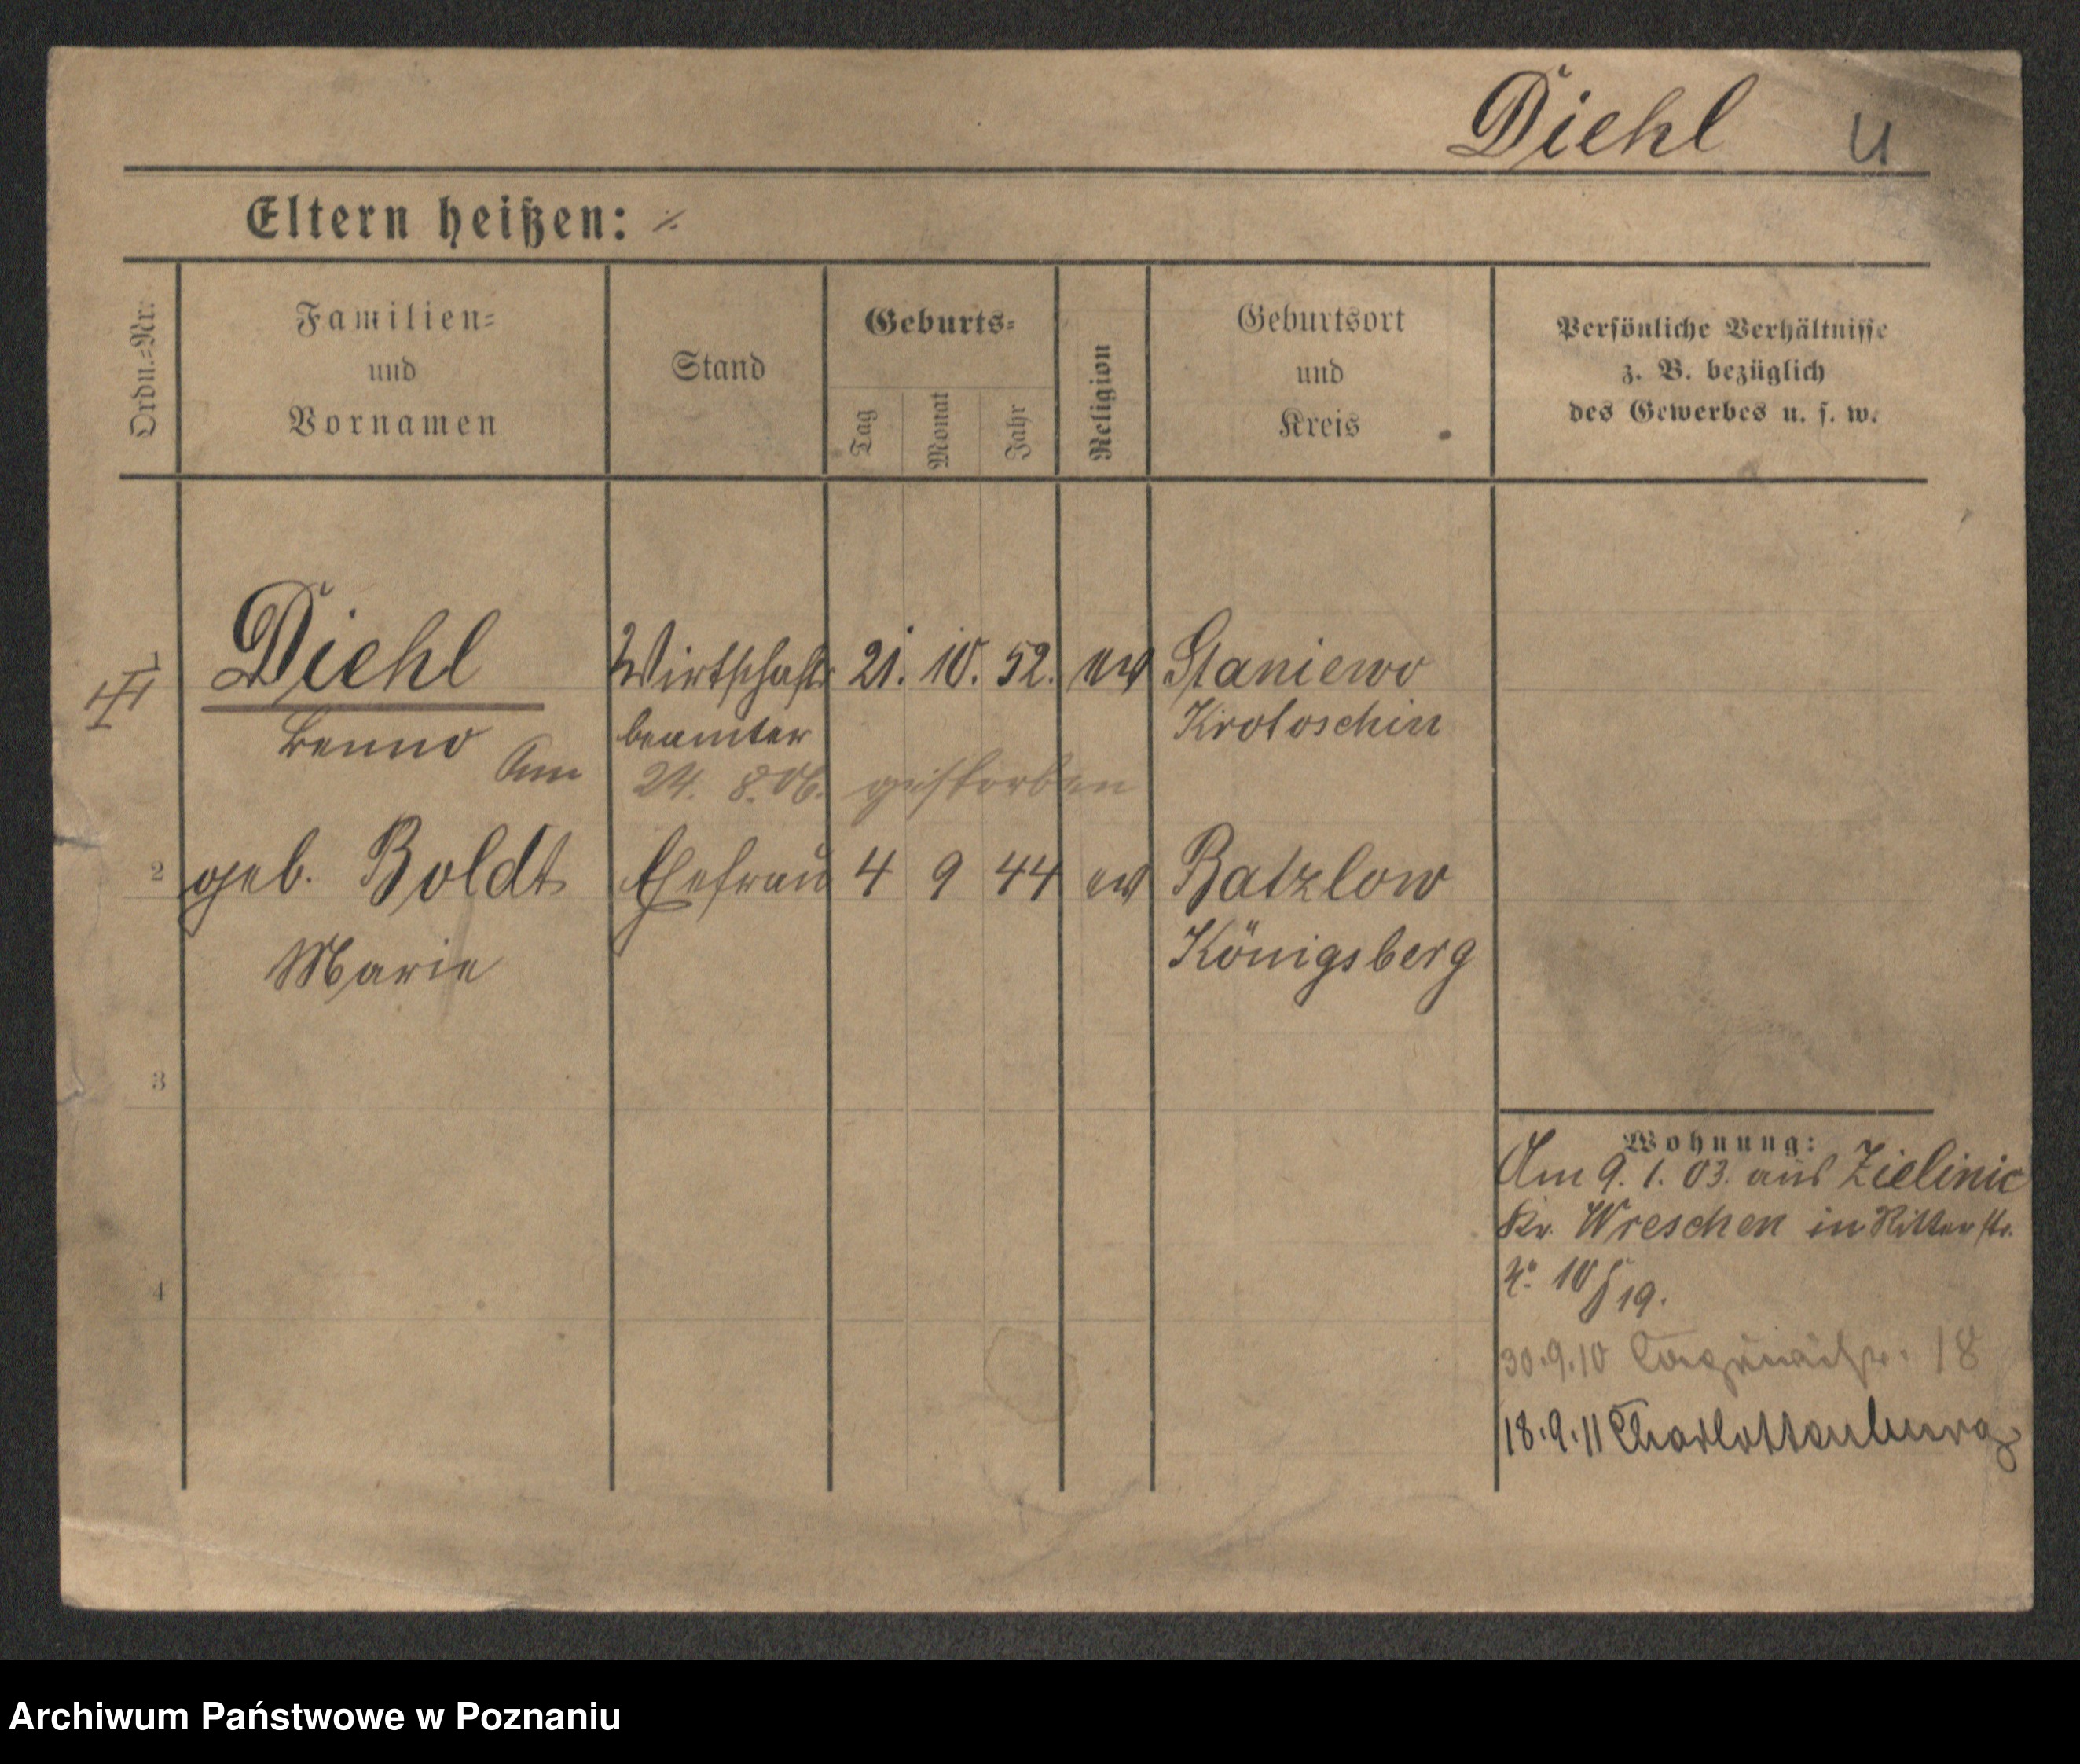 Diehl U
Eltern heißen: ⁒
Ordn.=Nr.
Familien=
und
Vornamen
Stand
Geburts=
Tag
Monat
Jahr
Religion
Geburtsort
und
Kreis
Persönliche Verhältnisse
z. B. bezüglich
des Gewerbes u. s. w.
1 Diehl Wirtschafts 21. 10. 52. ev Staniewo
III
Benno beamter Krotoschin
Am 24. 8. 06. gestorben
2 geb. Boldt Ehefrau 4 9 44 ev Batzlow
Marie Königsberg
3
4
Wohnung:
Am 9. 1. 03. aus Zielinic
Kr. Wreschen in Ritterstr.
N° 10 19.
30.9.10 18
18.9.11 Charlottenburg
Archiwum Państwowe w Poznaniu